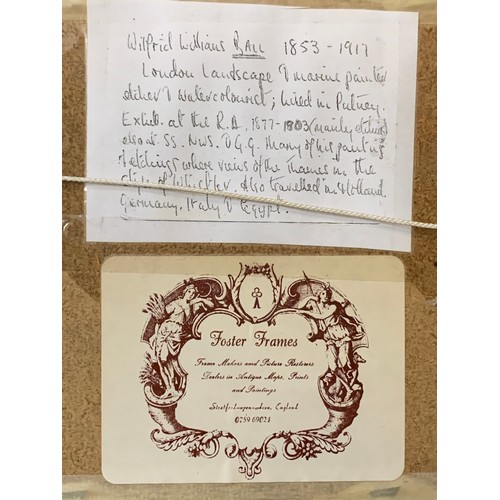 Wilfrid Williams BALL 1853 - 1917
London Landscape & marine painter
etcher & watercolourist; lived in Putney.
Exhib. at the R.A. 1877-1903 (mainly etchings)
also at SS. NWS. O.G.G. Many of his paintings
& etchings where views of the Thames in the
style of Whistler. Also travelled in Holland
Germany, Italy & Egypt.
Foster Frames
Frame Makers and Picture Restorers
Dealers in Antique Maps, Prints
and Paintings
Stratford-upon-Avon, England
0789 69024